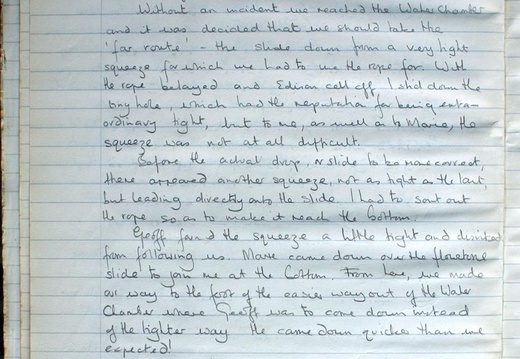 Without an incident we reached the Water Chamber
and it was decided that we should take the
'far route' - the slide down from a very tight
squeeze for which we had to use the rope for. With
the rope belayed and Edison cell off I slid down the
tiny hole, which had the reputation for being extra-
ordinary tight, but to me, as well as to Marie, the
squeeze was not at all difficult.
Before the actual drop, or slide to be more correct,
there appeared another squeeze, not as tight as the last,
but leading directly onto the slide. I had to sort out
the rope so as to make it reach the bottom.
Geoff found the squeeze a little tight and
from following us. Marie came down over the flowstone
slide to join me at the bottom. From here, we made
our way to the foot of the easier way out of the Water
Chamber where Geoff was to come down instead
of the tighter way. He came down quicker than we
expected!